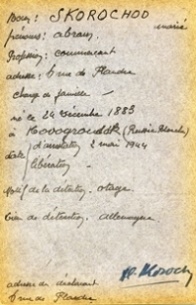 Nom: SKOROCHOD
mariée
prénoms: abram
Profession: commerçant
adresse: 6 rue de Flandre
charge de famille -
né le 24 décembre 1883
à Nowogrodek (Russie Blanche)
date d'arrestation 2 mai 1944
libération
Motif de la détention, otage
lieu de détention, allemagne
adresse du déclarant
6 rue de Flandre